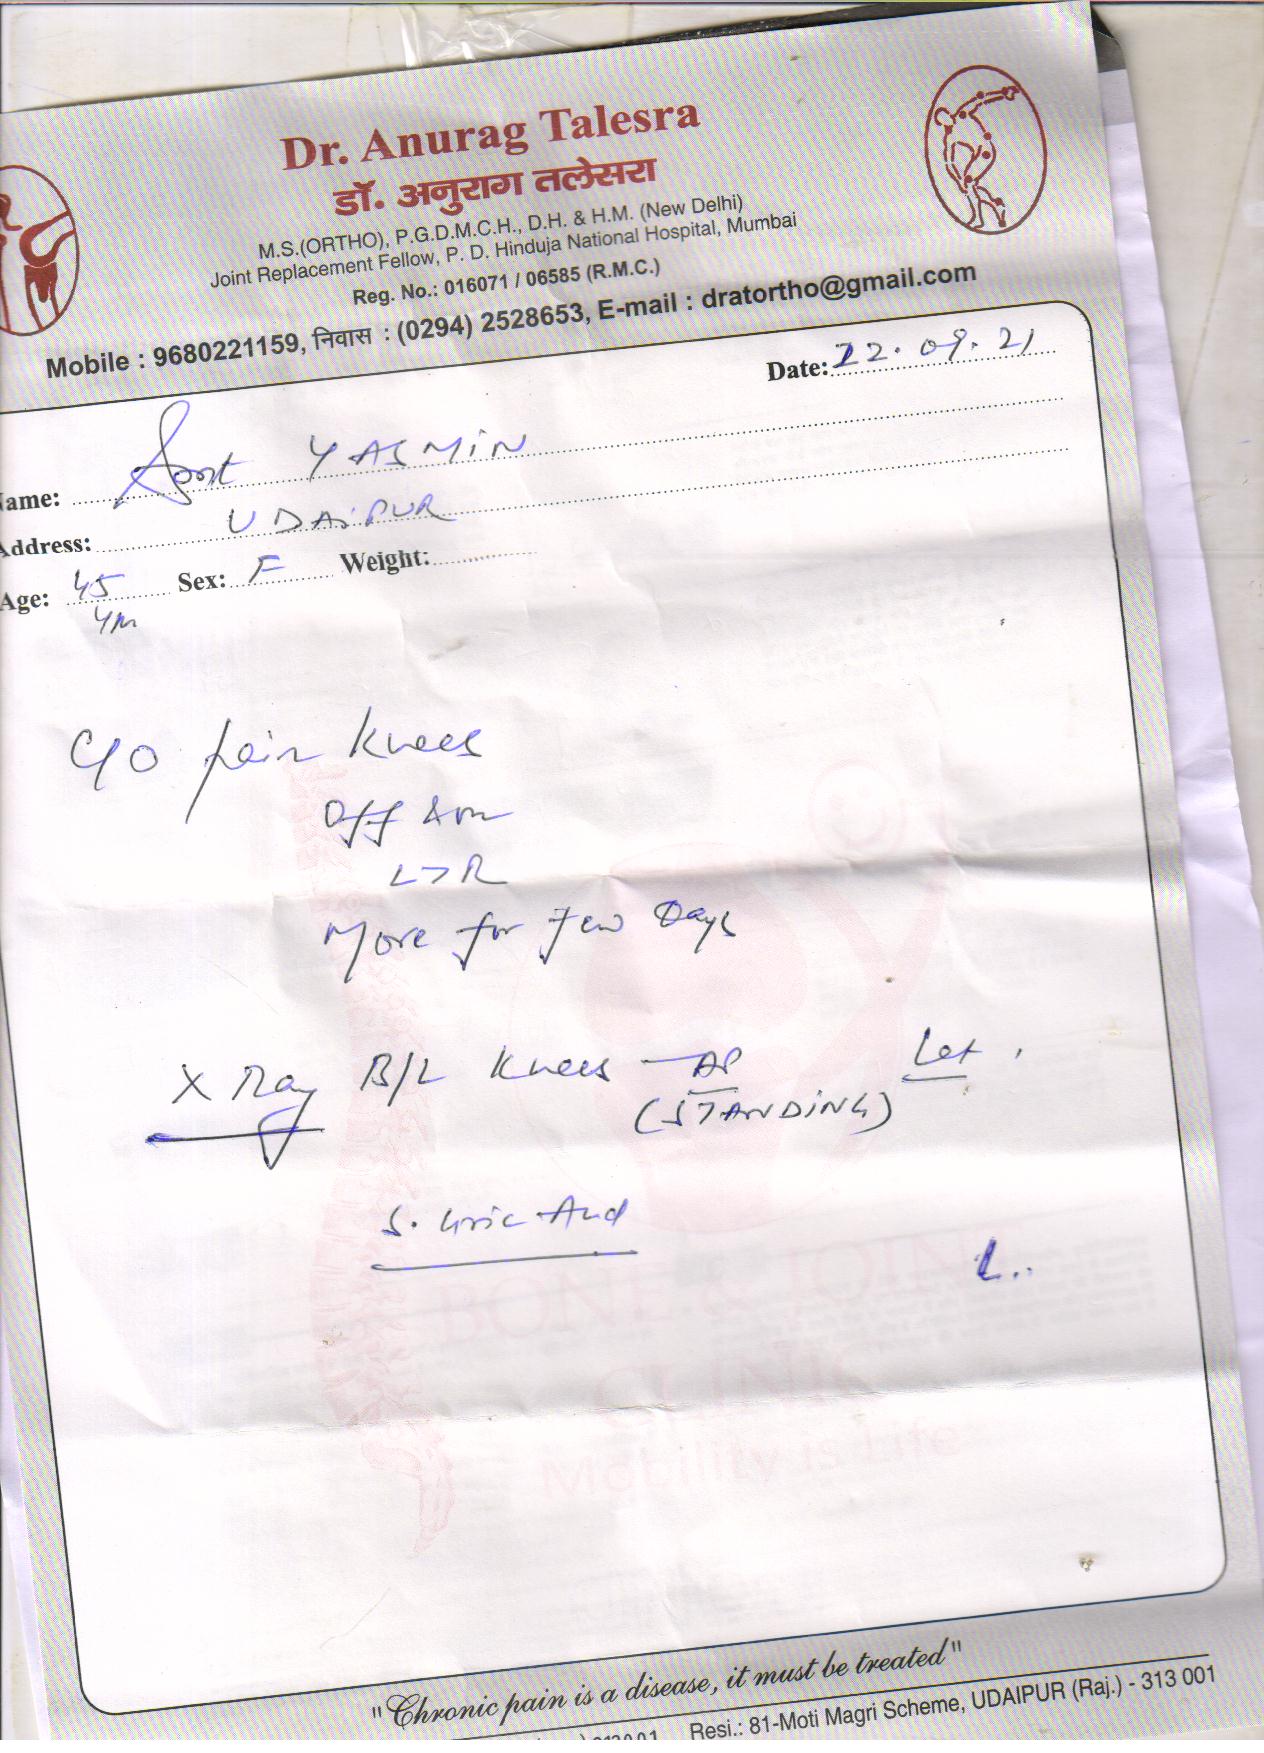 Dr. Anurag Talesra
डॉ. अनुराग तलेसरा
M.S.(ORTHO), P.G.D.M.C.H., D.H. & H.M. (New Delhi)
Joint Replacement Fellow, P. D. Hinduja National Hospital, Mumbai
Reg. No.: 016071 / 06585 (R.M.C.)
Mobile : 9680221159, निवास : (0294) 2528653, E-mail : dratortho@gmail.com
Date: 22.09.21
Name: Smt YASMIN
Address: UDAIPUR
Age: 45 Sex: F Weight:
C/O pain Knees
Off & on
L>R
More for Few Days
X Ray B/L Knees — AP Lat
(STANDING)
S. Uric Acid
BONE & JOIN
CLINIC
Mobility is Life
"Chronic pain is a disease, it must be treated"
Resi.: 81-Moti Magri Scheme, UDAIPUR (Raj.) - 313 001